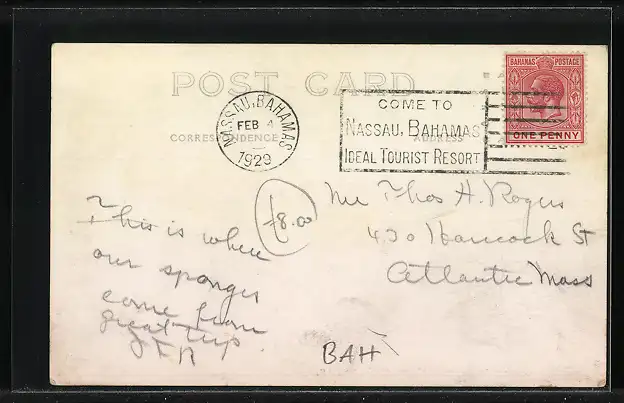 POST CARD
BAHAMAS POSTAGE
ONE PENNY
NASSAU, BAHAMAS
FEB 4
1929
COME TO
NASSAU, BAHAMAS
IDEAL TOURIST RESORT
CORRESPONDENCE
ADDRESS
Mr Thos H. Rogers
430 Hancock St
Atlantic Mass
8.00
This is where
our sponges
come from
great trip.
BAH